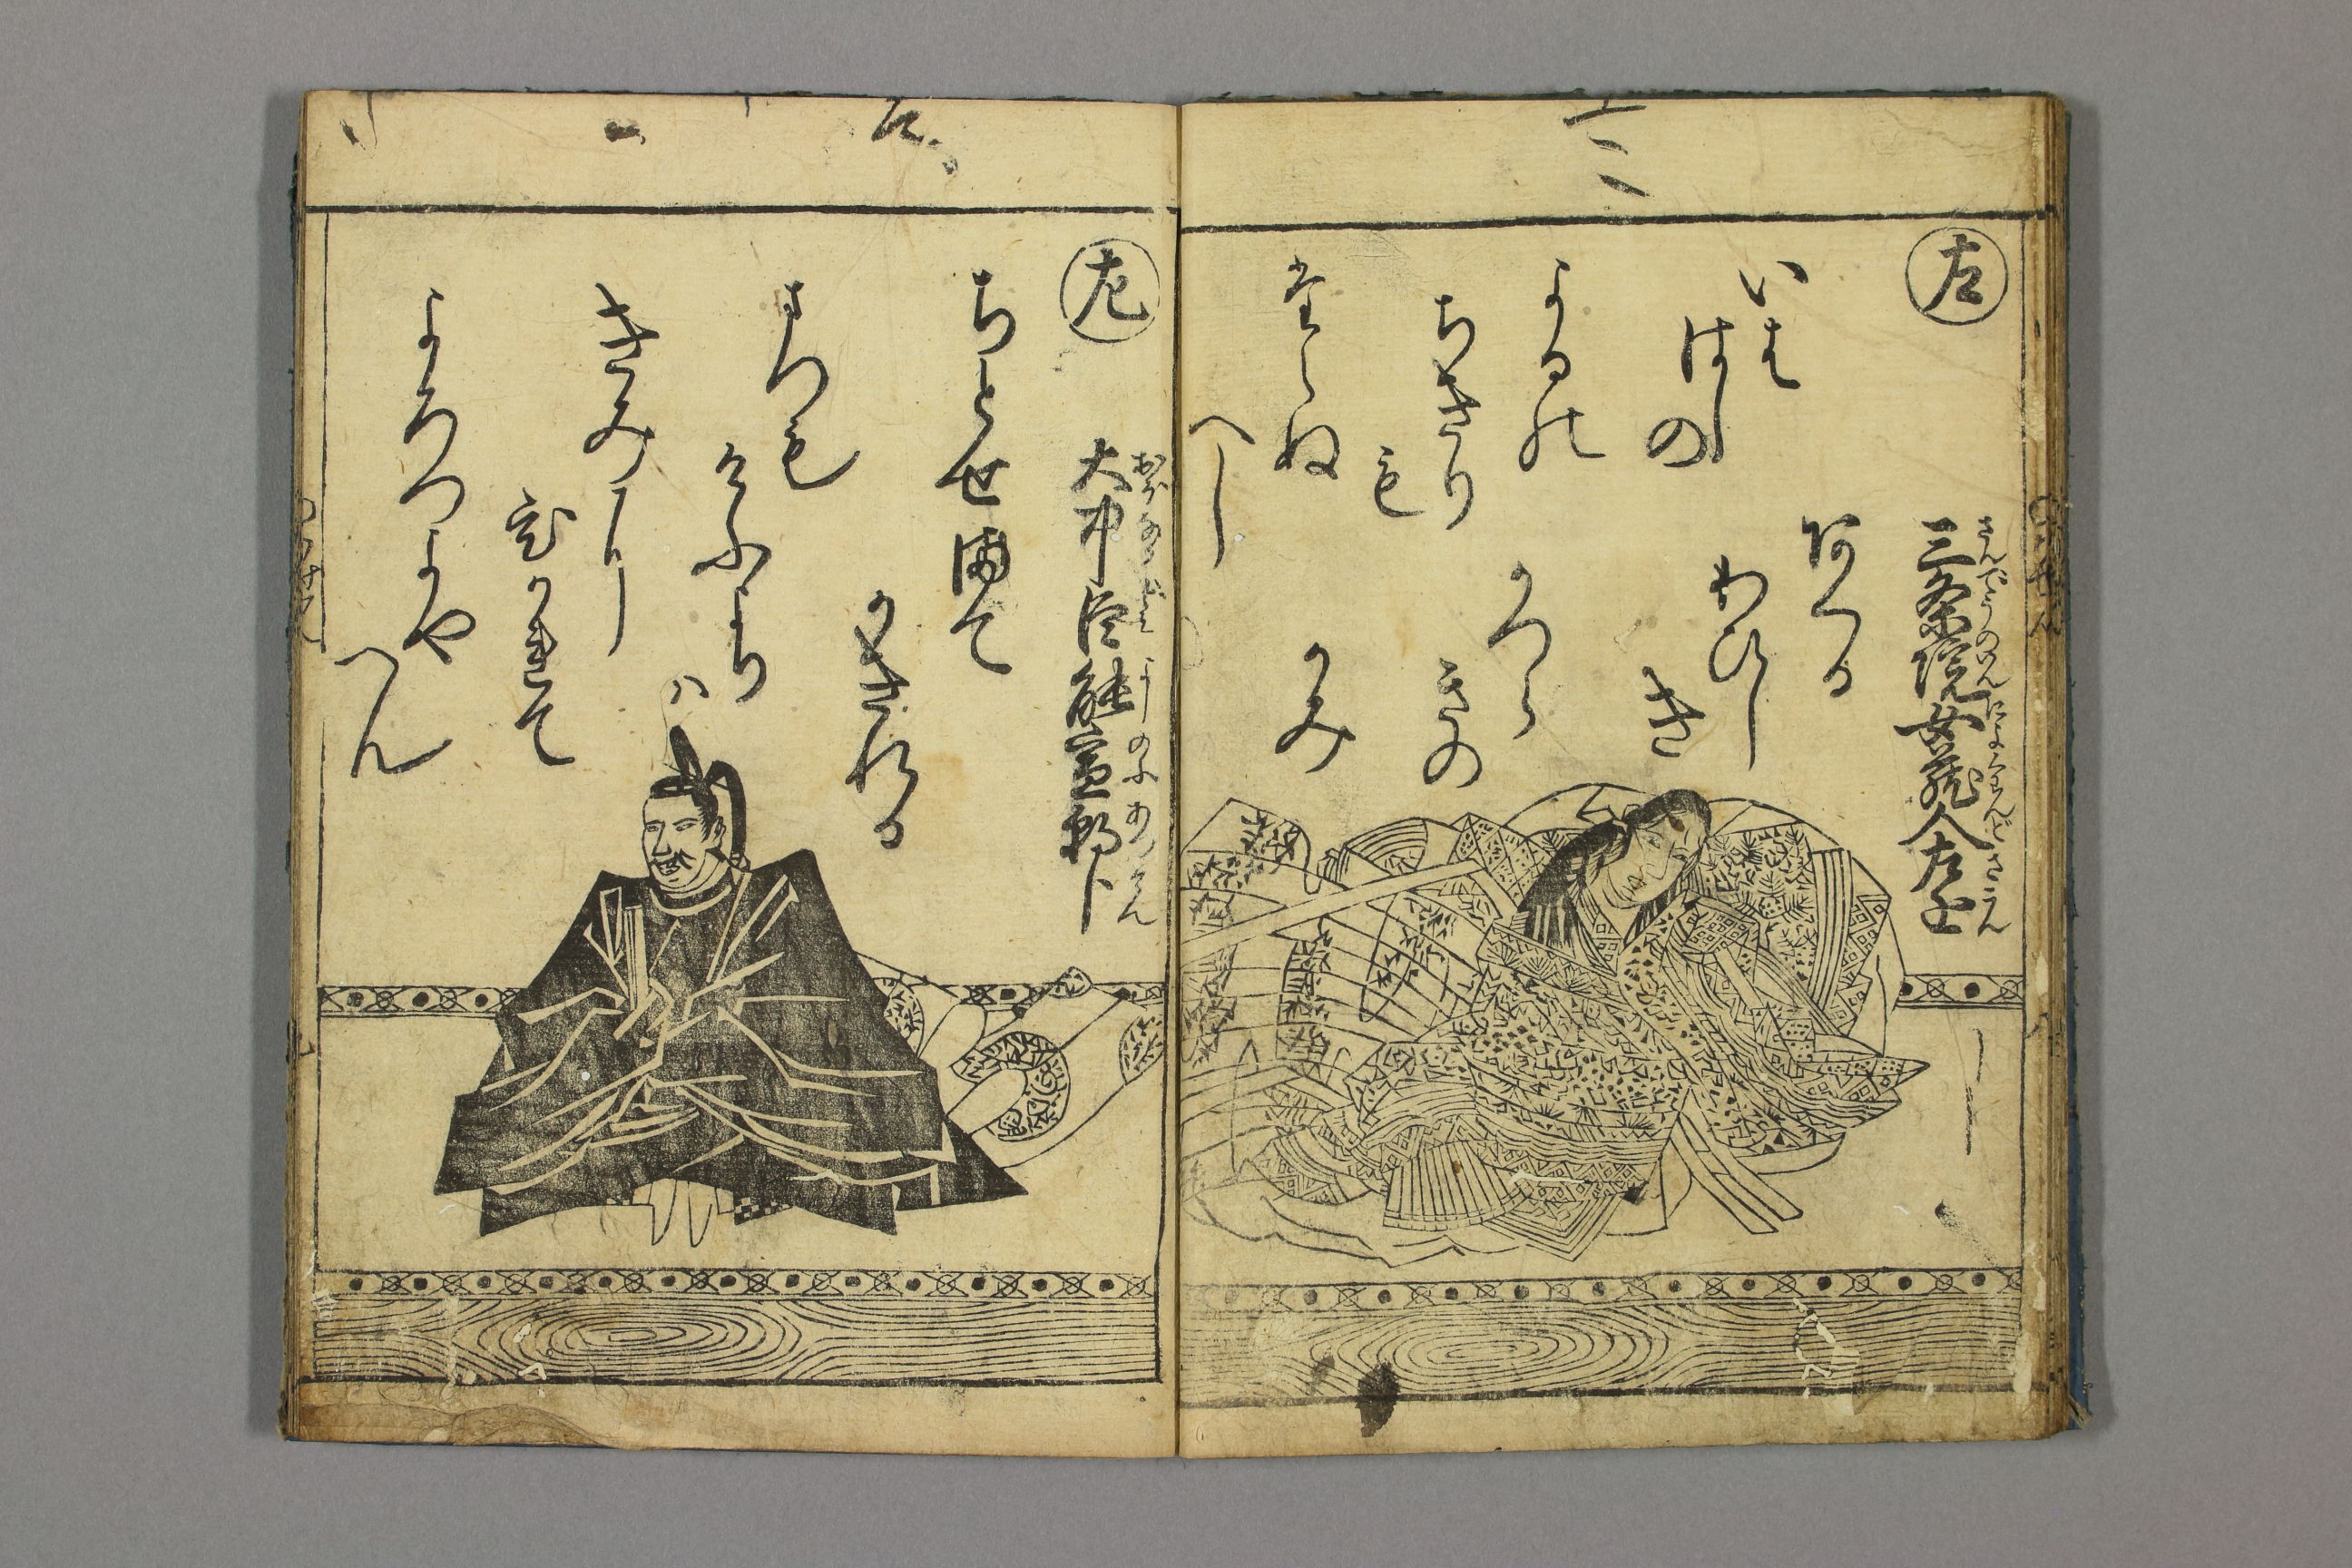 左
三条院女蔵人左近
さんでうのゐんによくらんどさこん
いは
はしの
よるの
ちきりも
たえぬ
へし
あくる
わひし
き
かつら
きの
かみ
左
大中臣能宣朝臣
おほなかとみよしのふあそん
ちとせまて
かきれる
まつも
けふより
は
きみに
ひかれて
よろつよや
へん